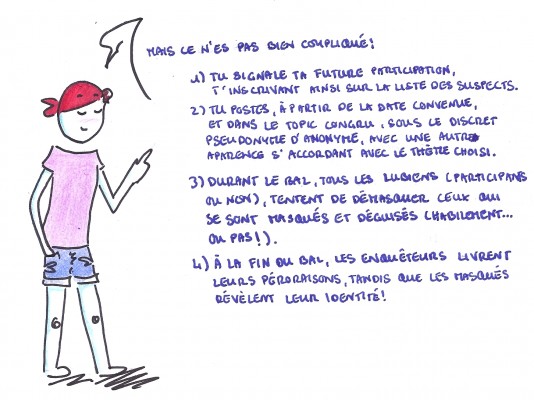 MAIS CE N'ES PAS BIEN COMPLIQUÉ!
1) TU SIGNALE TA FUTURE PARTICIPATION,
T'INSCRIVANT AINSI SUR LA LISTE DES SUSPECTS.
2) TU POSTES, À PARTIR DE LA DATE CONVENUE,
ET DANS LE TOPIC CONGRU, SOUS LE DISCRET
PSEUDONYME D'ANONYME, AVEC UNE AUTRE
APARENCE S'ACCORDANT AVEC LE THÈME CHOISI.
3) DURANT LE BAL, TOUS LES LUCIENS (PARTICIPANS
OU NON), TENTENT DE DÉMASQUER CEUX QUI
SE SONT MASQUÉS ET DÉGUISÉS (HABILEMENT...
OU PAS!).
4) À LA FIN DU BAL, LES ENQUÊTEURS LIVRENT
LEURS PÉRORAISONS, TANDIS QUE LES MASQUÉS
RÉVÈLENT LEUR IDENTITÉ!